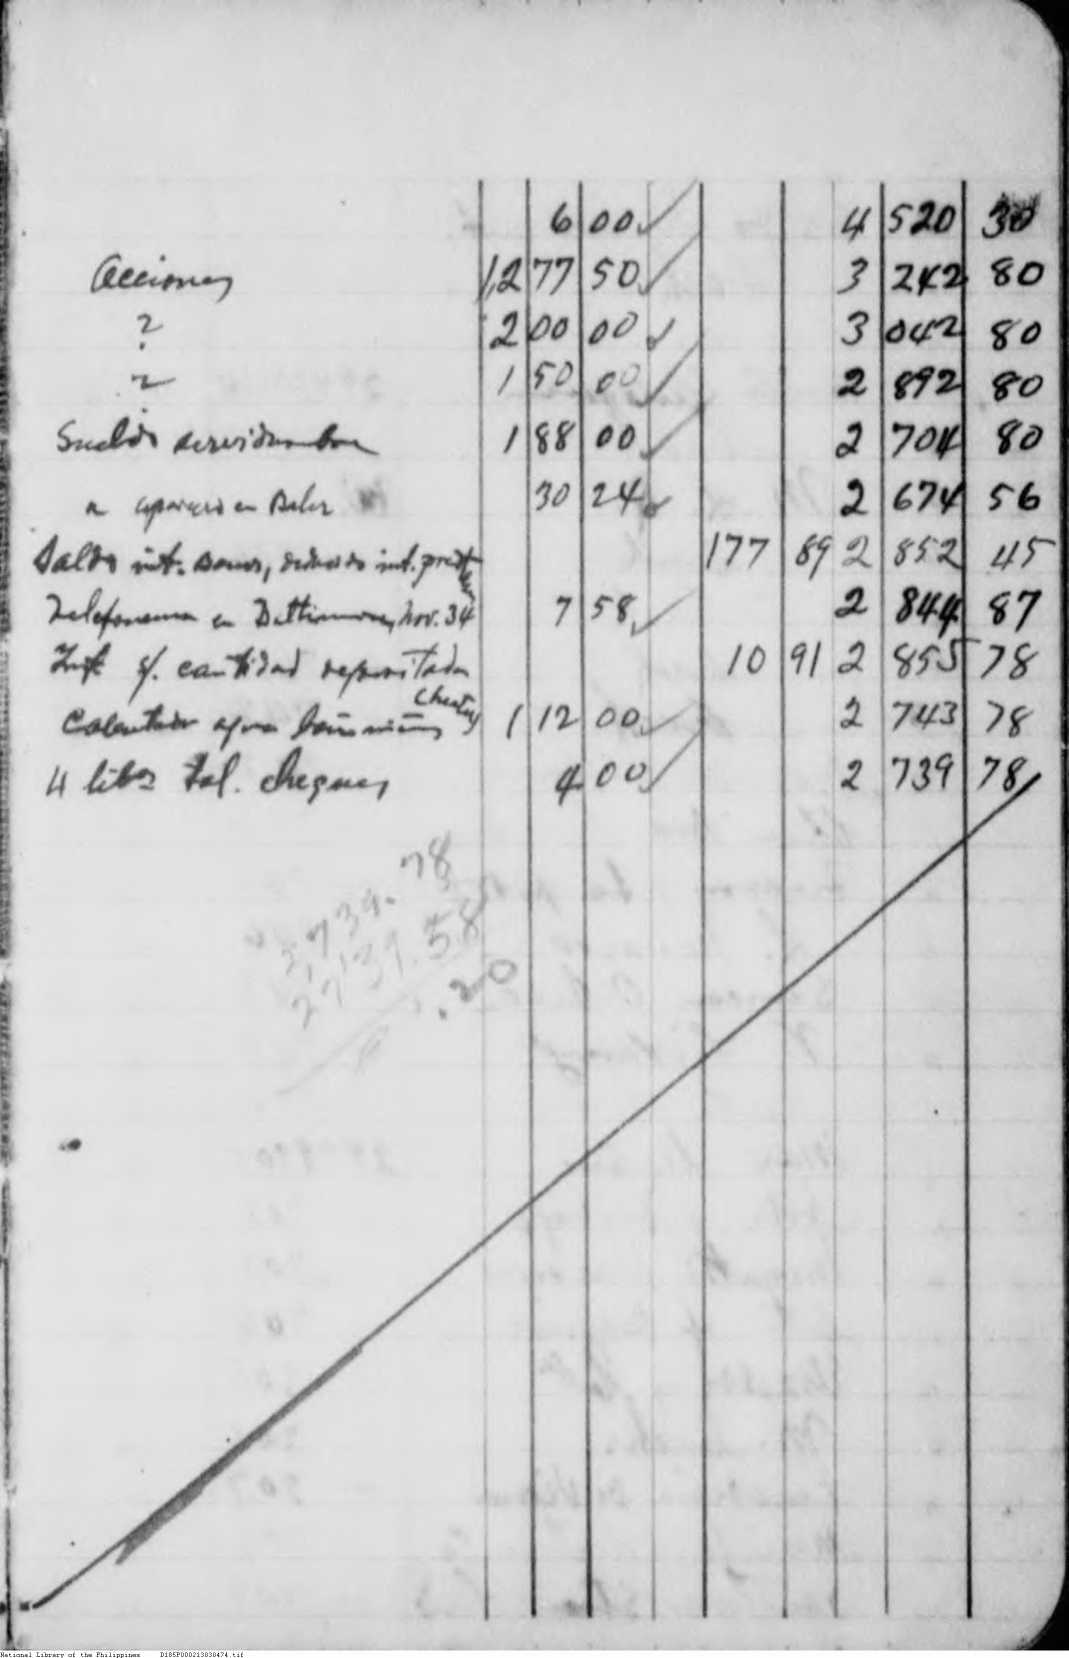 6 00 ✓ 4 520 30
Acciones 1,277 50 ✓ 3 242 80
? 200 00 ✓ 3 042 80
150 00 ✓ 2 892 80
Sueldo servidumbre 188 00 ✓ 2 704 80
" en Baler 30 24 ✓ 2 674 56
Saldo int. bonos, deducido int. 177 89 2 852 45
Telefonema en Baltimore, Nov. 34 7 58 ✓ 2 844 87
Int. s/. cantidad depositada 10 91 2 855 78
Calentador agua baño 112 00 ✓ 2 743 78
4 libs tal. cheques 4 00 ✓ 2 739 78
2,739.78
2739.58
.20
National Library of the Philippines D185P000213038474.tif